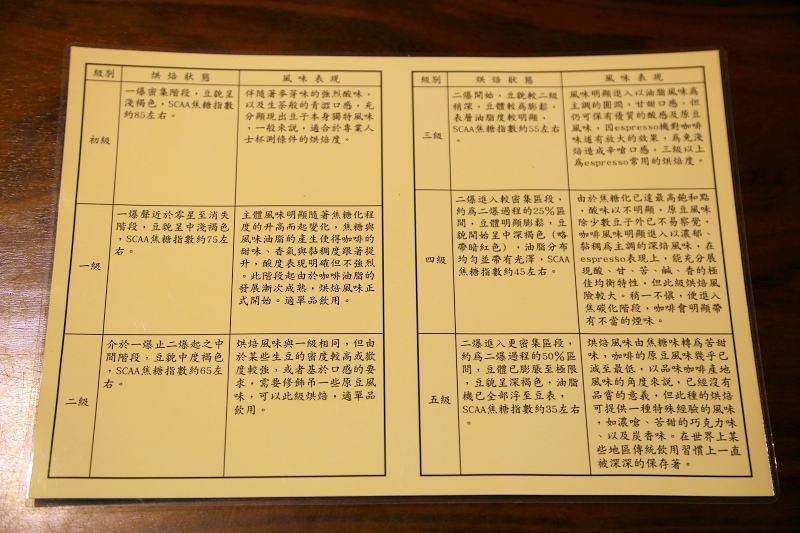 級別
烘焙狀態
風味表現
初級
一爆密集階段，豆貌呈
淺褐色，SCAA焦糖指數
約85左右。
伴隨著麥芽味的強烈酸味，
以及生茶般的青澀口感，充
分顯現出豆子本身獨特風味
，一般來說，適合於專業人
士杯測條件的烘焙度。
一級
一爆聲近於零星至消失
階段，豆貌呈中淺褐色，
SCAA焦糖指數約75左
右。
主體風味明顯隨著焦糖化程
度的升高而起變化，焦糖與
風味油脂的產生使得咖啡的
甜味、香氣與黏稠度跟著提
升，酸度表現明確但不強烈
。此階段起由於咖啡油脂的
發展漸次成熟，烘焙風味正
式開始。適單品飲用。
二級
介於一爆止二爆起之中
間階段，豆貌中度褐色
，SCAA焦糖指數約65左
右。
烘焙風味與一級相同，但由
於某些生豆的密度較高或歉
度較強，或者基於口感的要
求，需要修飾吊一些原豆風
味，可以此級烘焙，適單品
飲用。
級別
烘焙狀態
風味表現
三級
二爆開始，豆貌較二級
稍深，豆體較為膨鬆，
表層油脂度較明顯，
SCAA焦糖指數約55左右
。
風味明顯進入以油脂風味為
主調的圓潤，甘甜口感，但
仍可保有優質的酸感及原豆
風味，因espresso機對咖啡
味道有放大的效果，為免淺
焙造成辛嗆口感，三級以上
為espresso常用的烘焙度。
四級
二爆進入較密集區段，
約為二爆過程的25%區
間，豆體明顯膨鬆，豆
貌開始呈中深褐色（略
帶暗紅色），油脂分布
均勻並帶有光澤，SCAA
焦糖指數約45左右。
由於焦糖化已達最高飽和點
，酸味以不明顯，原豆風味
除少數豆子外已不易察覺，
咖啡風味明顯進入以濃郁、
黏稠為主調的深焙風味，在
espresso表現上，能充分展
現酸、甘、苦、鹹、香的極
佳均衡特性，但此級烘焙風
險較大。稍一不慎，使進入
焦碳化階段，咖啡會明顯帶
有不當的煙味。
五級
二爆進入更密集區段，
約為二爆過程的50%區
間，豆體已膨脹至極限
，豆貌呈深褐色，油脂
機已全部浮至豆表，
SCAA焦糖指數約35左右
。
烘焙風味由焦糖味轉為苦甜
味，咖啡的原豆風味幾乎已
減至最低，以品味咖啡產地
風味的角度來說，已經沒有
品嘗的意義，但此種的烘焙
可提供一種特殊經驗的風味
，如濃嗆、苦甜的巧克力味
、以及炭香味。在世界上某
些地區傳統飲用習慣上一直
被深深的保存著。